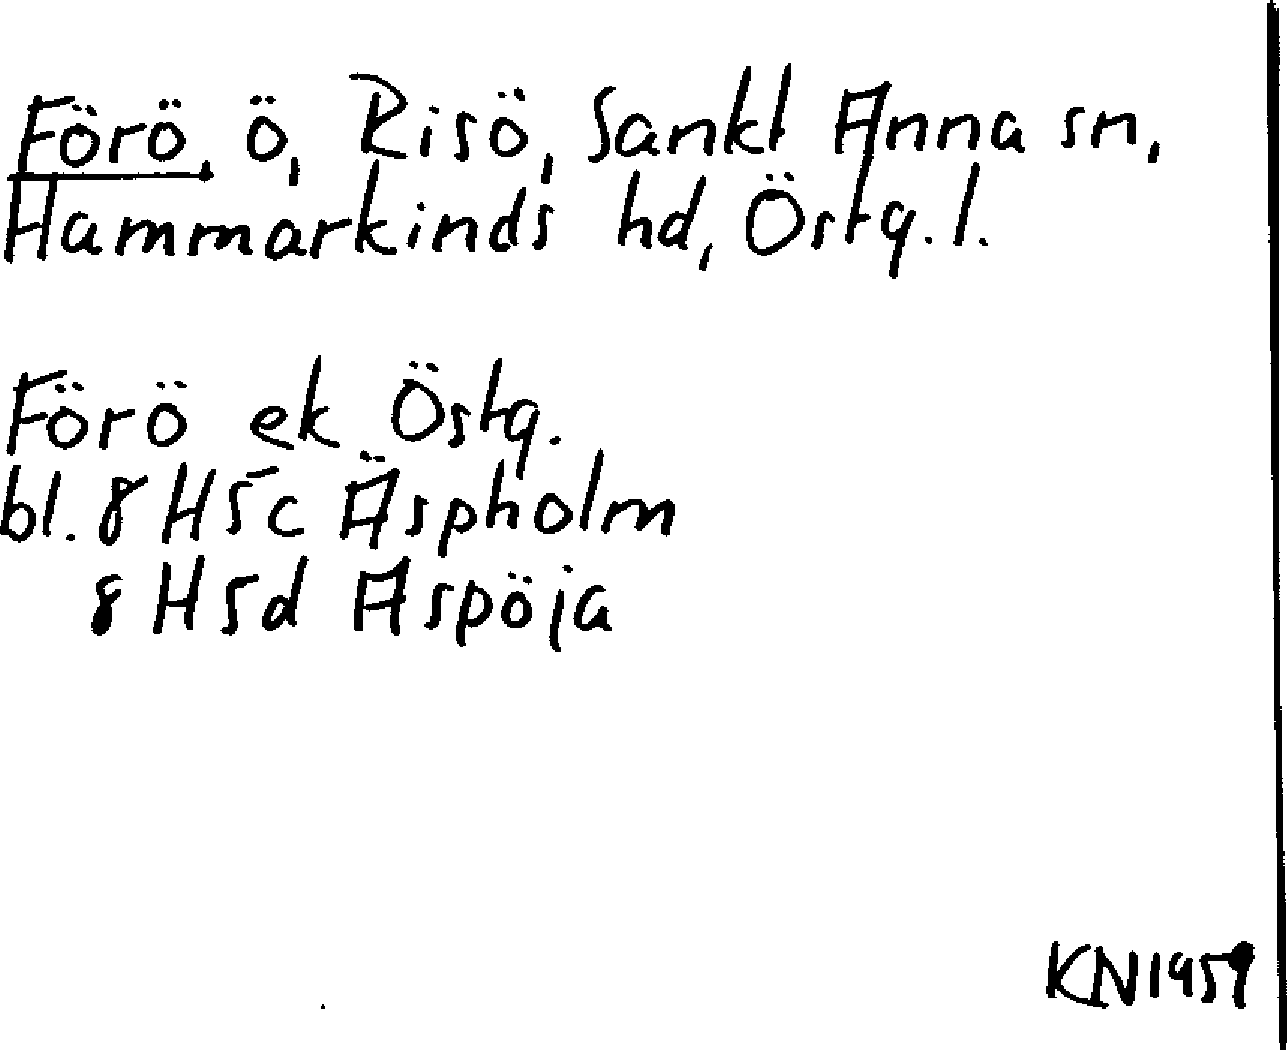 Förö, ö, Risö, Sankt Anna sn,
Hammarkinds hd, Östg. l.
Förö ek Östg.
bl. 8 H 5c Äspholm
8 H 5d Aspöja
KN1959